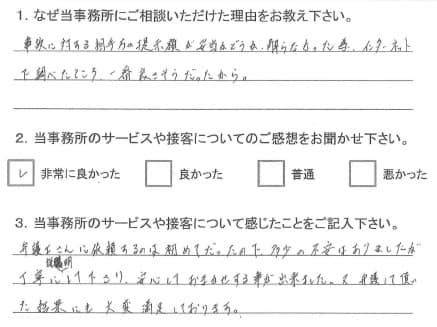 1. なぜ当事務所にご相談いただけた理由をお教え下さい。
事故に対する相手方の提示額が妥当かどうか、明らなかった為、インターネット
で調べたところ、一番良さそうだったから。
2. 当事務所のサービスや接客についてのご感想をお聞かせ下さい。
レ 非常に良かった 良かった 普通 悪かった
3. 当事務所のサービスや接客について感じたことをご記入下さい。
弁護士さんに依頼するのは初めてだったので、多少の不安はありましたが
丁寧に説明して下さり、安心しておまかせする事が出来ました。又、弁護して頂い
た結果にも大変満足しております。